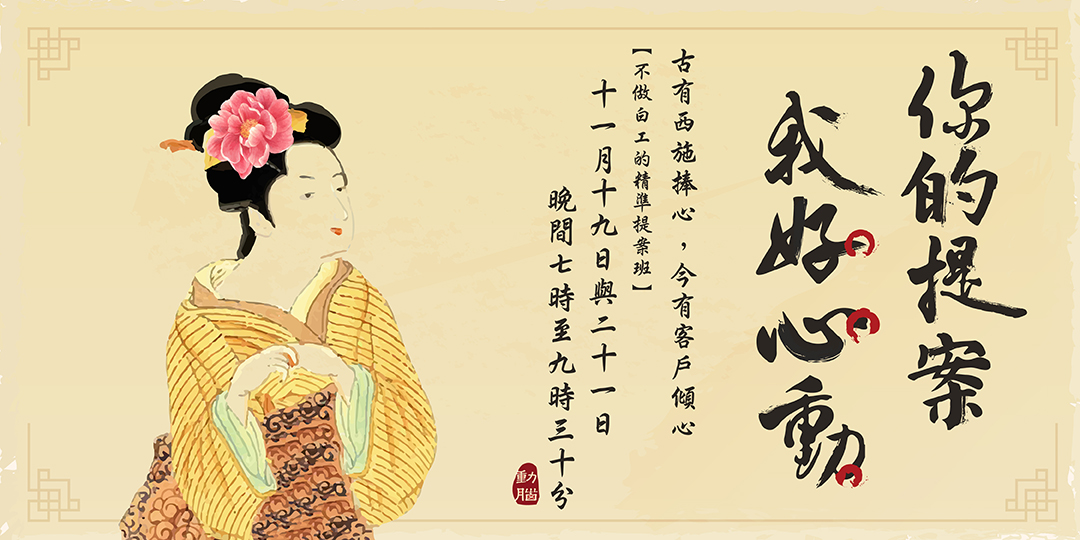 你的提案
我好心動
古有西施捧心，今有客戶傾心
【不做白工的精準提案班】
十一月十九日與二十一日
晚間七時至九時三十分
動腦